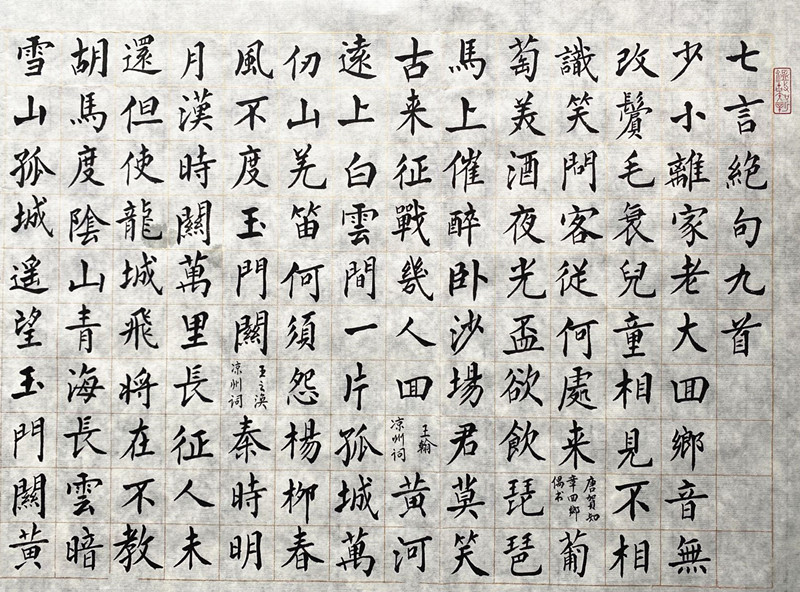 七言絕句九首
少小離家老大囬鄉音無
改鬢毛衰兒童相見不相
識笑問客從何處来
唐賀知
章回鄉
偶書
葡
萄美酒夜光盃欲飲琵琶
馬上催醉卧沙場君莫笑
古来征戰幾人囬
王翰
凉州词
黄河
遠上白雲間一片孤城萬
仞山羌笛何須怨楊柳春
風不度玉門關
王之渙
凉州词
秦時明
月漢時關萬里長征人未
還但使龍城飛将在不教
胡馬度陰山青海長雲暗
雪山孤城遥望玉門關黄